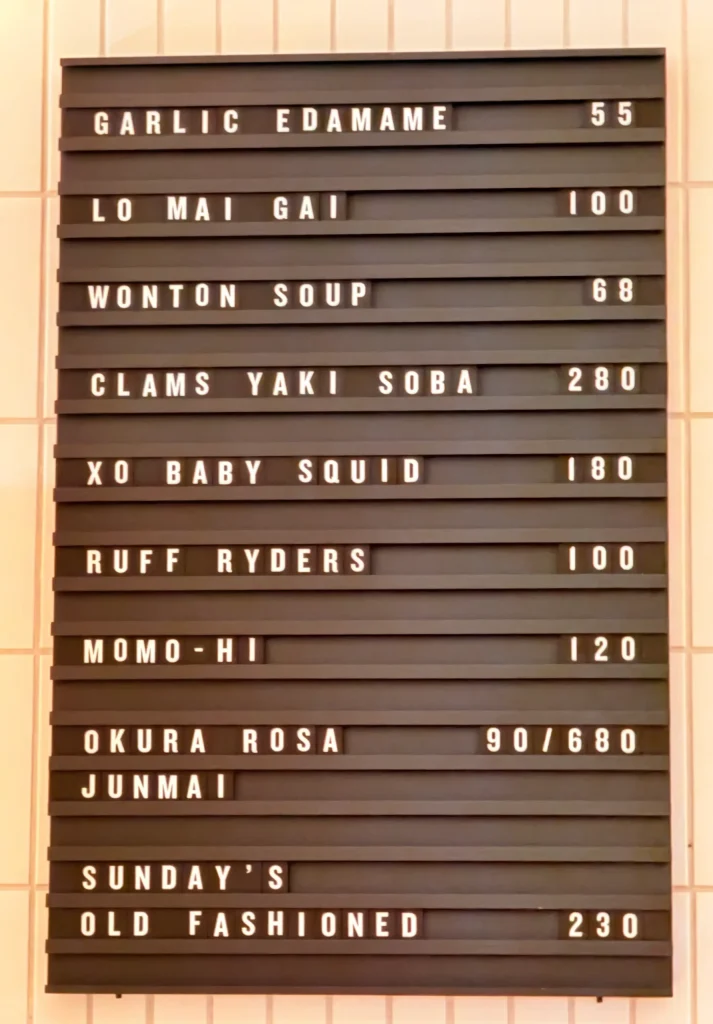 GARLIC EDAMAME 55
LO MAI GAI 100
WONTON SOUP 68
CLAMS YAKI SOBA 280
XO BABY SQUID 180
RUFF RYDERS 100
MOMO-HI 120
OKURA ROSA 90/680
JUNMAI
SUNDAY'S
OLD FASHIONED 230